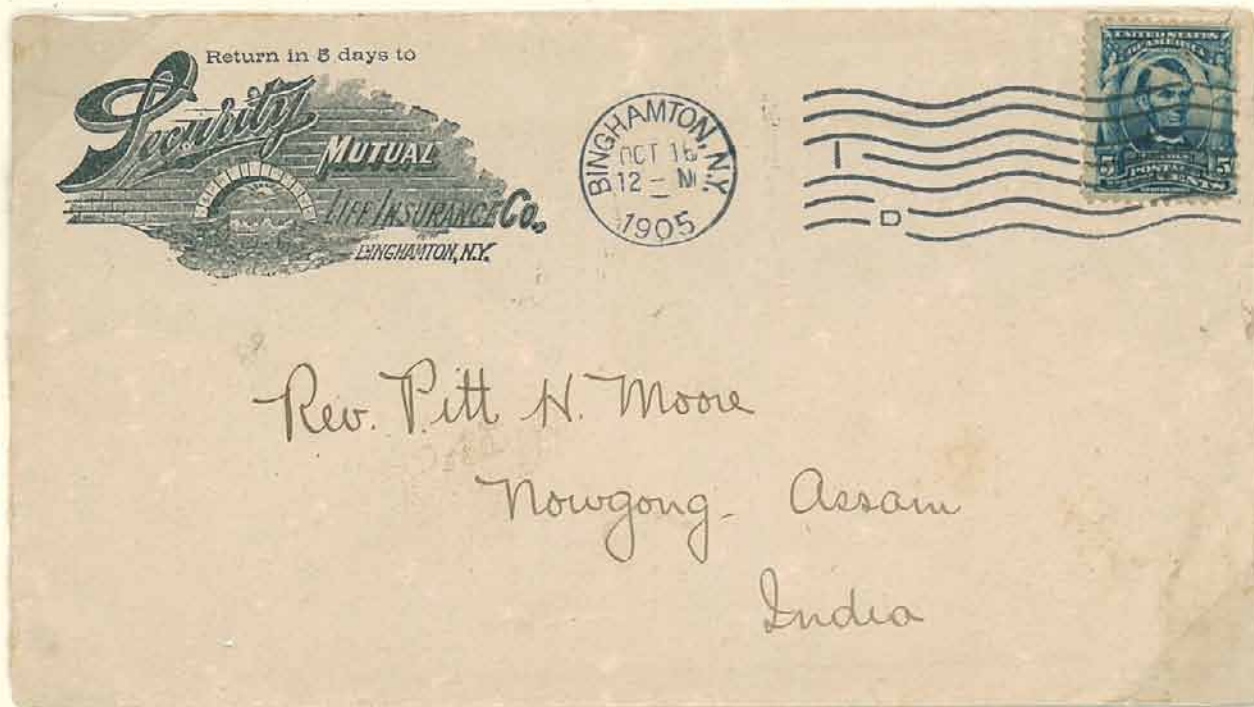 Return in 5 days to
Security
MUTUAL
LIFE INSURANCE CO.,
BINGHAMTON, N.Y.
BINGHAMTON, N.Y.
OCT 16
12 - M
1905
I
D
UNITED STATES
OF AMERICA
5 5
POSTAGE
Rev. Pitt H. Moore
Nowgong - Assam
India